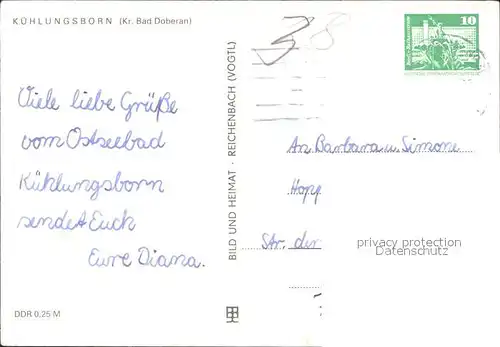 KÜHLUNGSBORN (Kr. Bad Doberan)
38
10
Viele liebe Grüße
vom Ostseebad
Kühlungsborn
sendet Euch
Eure Diana.
BILD UND HEIMAT · REICHENBACH (VOGTL)
An Barbara u. Simone
Hopp
Str. der
privacy protection
Datenschutz
DDR 0,25 M